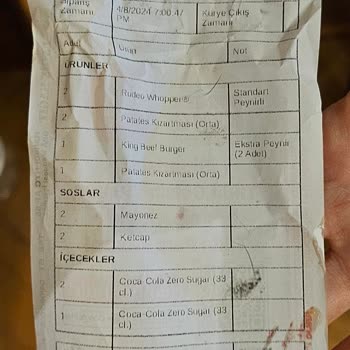 Sipariş Zamanı 4/8/2024 7:00:47 PM Kurye Çıkış Zamanı
Adet Ürün Not
ÜRÜNLER
2 Rodeo Whopper® Standart Peynirli
2 Patates Kızartması (Orta)
1 King Beef Burger Ekstra Peynir (2 Adet)
1 Patates Kızartması (Orta)
SOSLAR
2 Mayonez
2 Ketçap
İÇECEKLER
2 Coca-Cola Zero Sugar (33 cl.)
1 Coca-Cola Zero Sugar (33 cl.)